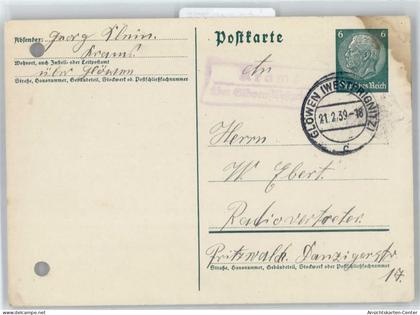 Absender: Georg Klein
Krams
Wohnort, auch Zustell- oder Leitpostamt
über Glöwen
Straße, Hausnummer, Gebäudeteil, Stockwerk od. Postschließfachnummer
Postkarte
6 6
Deutsches Reich
An
Krams
GLÖWEN (WESTPRIGNITZ)
21.2.39.-18
c
Herrn
W Ebert.
Radiovertreter
Pritzwalk. Danzigerstr
Straße, Hausnummer, Gebäudeteil, Stockwerk oder Postschließfachnummer
17.
oldthing
Ansichtskarten-Center